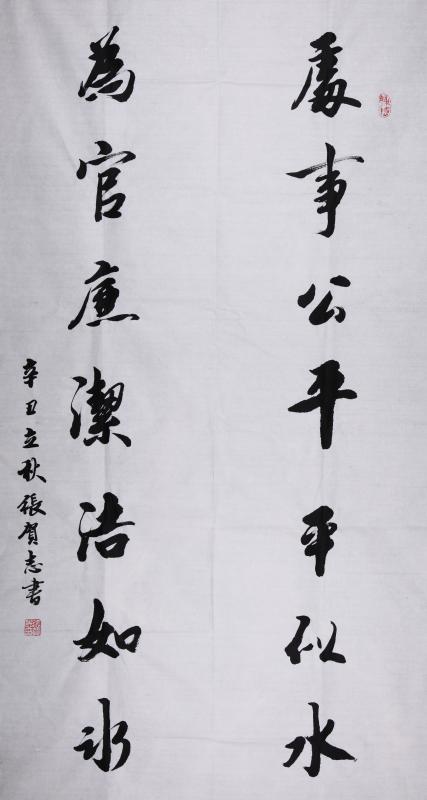 處事公平平似水
為官廉潔浩如冰
辛丑立秋張賀志書